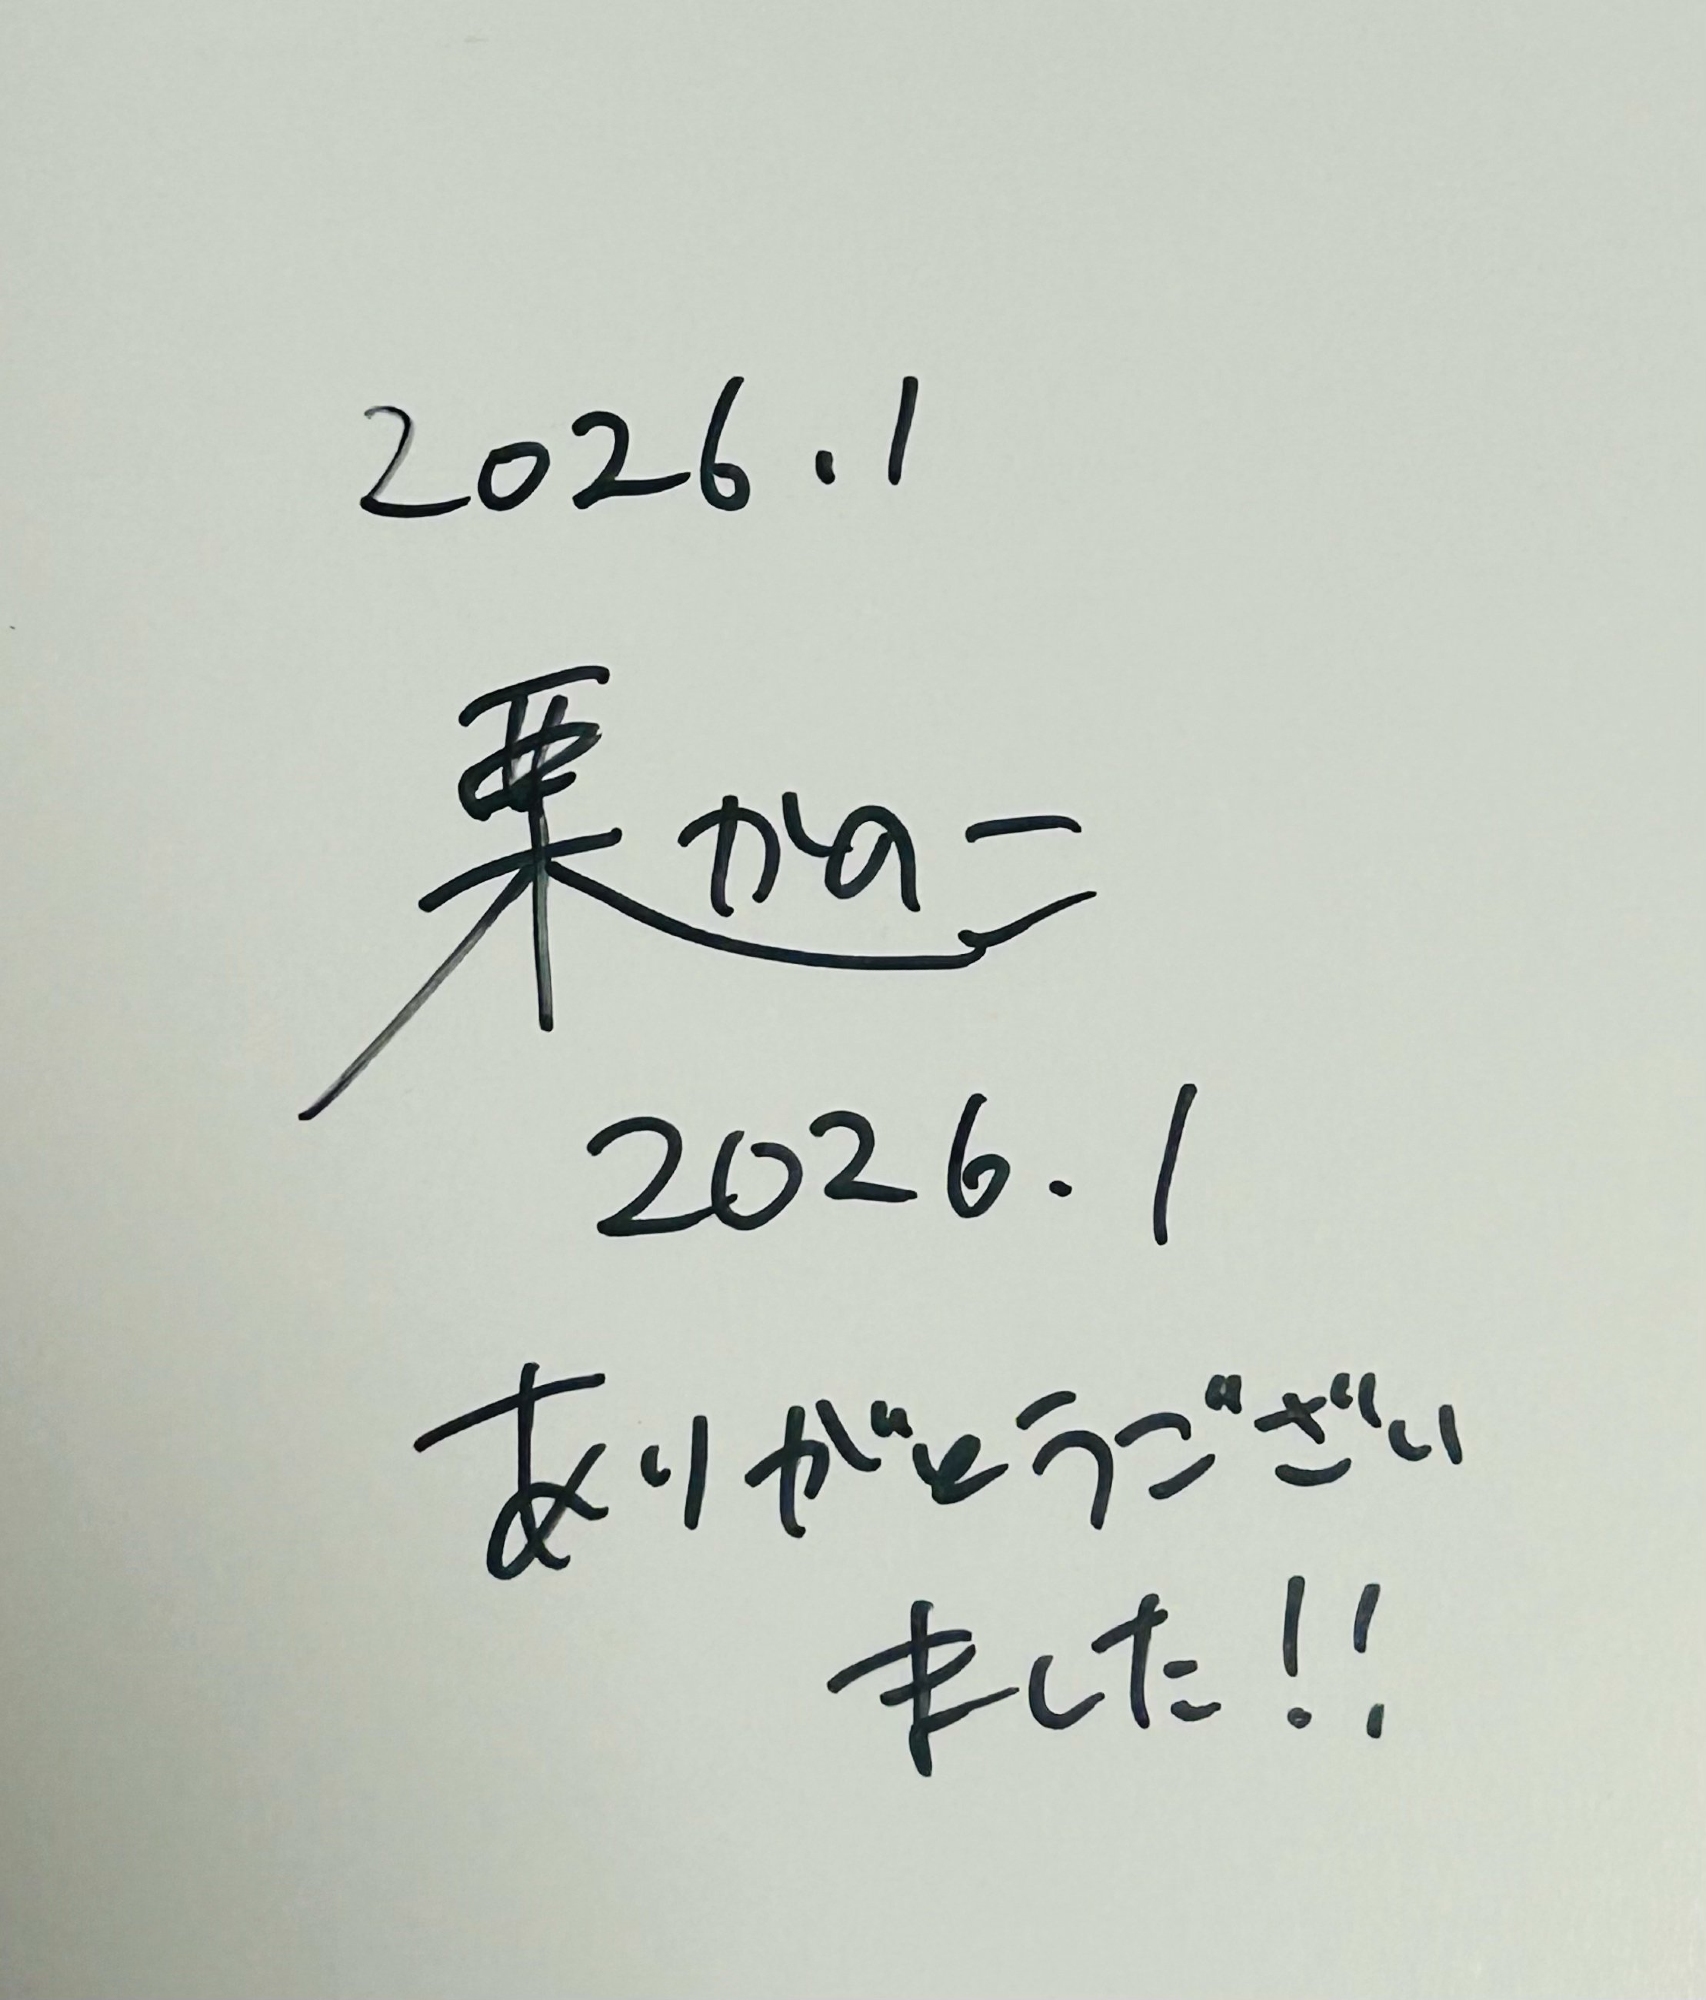 2026.1
栗かのこ
2026.1
ありがとうござい
ました!!